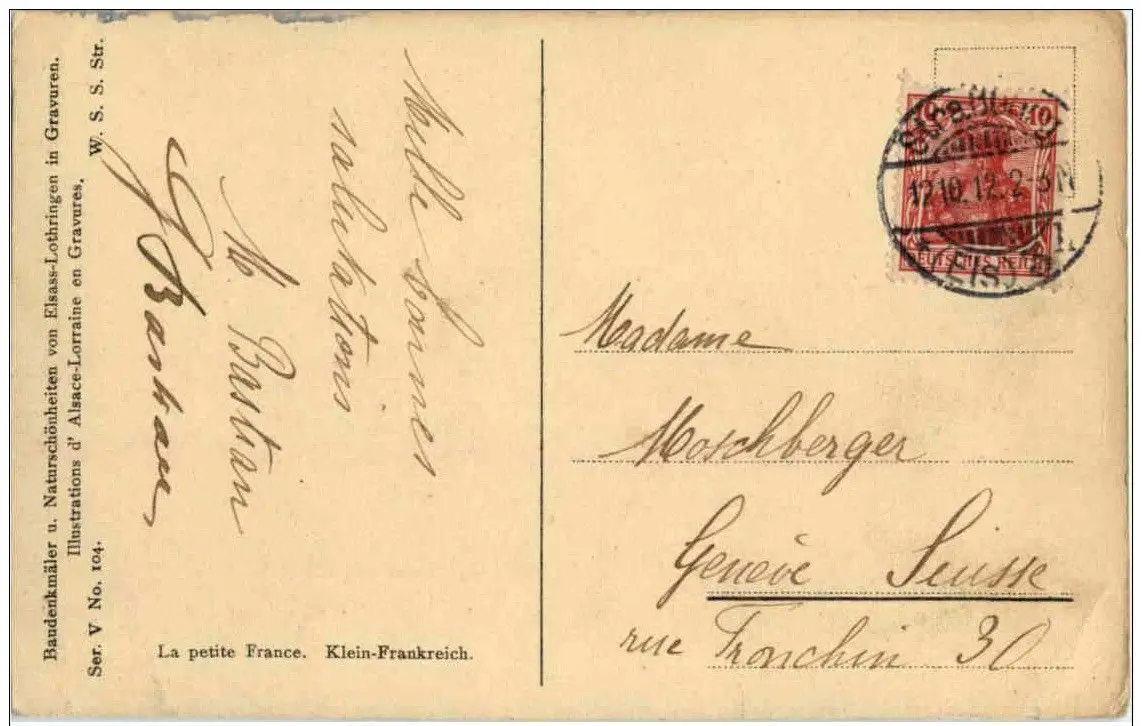 Baudenkmäler u. Naturschönheiten von Elsass-Lothringen in Gravuren.
Illustrations d' Alsace-Lorraine en Gravures.
Ser. V No. 104.
W. S. S. Str.
Mille bonnes
salutations
M Bastian
G Bastian
La petite France. Klein-Frankreich.
10 10
DEUTSCHES REICH
Strassburg
17.10.12.2-3N
* (Els.) 1.
Madame
Moschberger
Genève Suisse
rue Tronchin 30